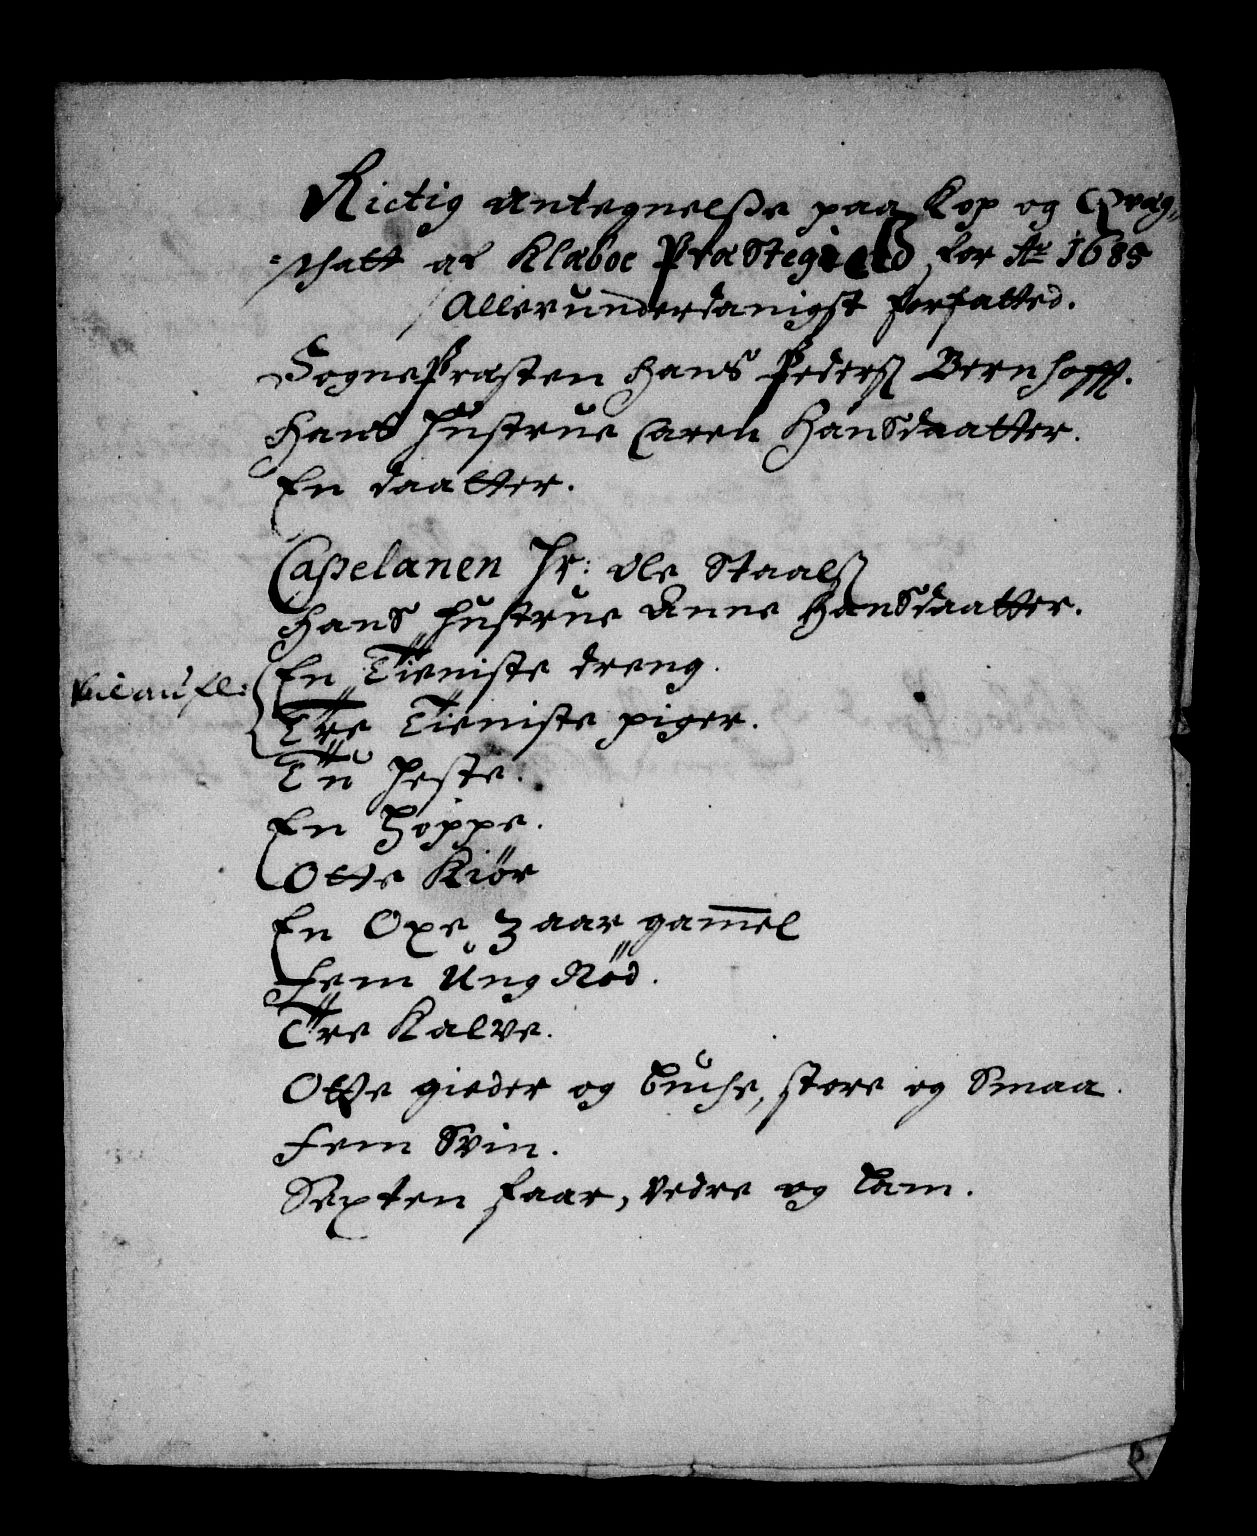 Rictig Antegnelsse paa Kop og Qvæg-
schatt af Klæboe Præstegield for Ao 1683
Allerunderdanigst forfatted.
SognePræsten Hans Pederss Bernhofft.
Hans Hustrue Caren Hansdaatter.
En daatter.
Capelanen Hr: Ole Staalss
Hans Hustrue Anne Hansdaatter.
En Tieniste dreng.
Tre Tieniste piger.
Tu Heste.
En Hoppe.
Otte Kiör
En Oxe 3 aar gam̅el
Fem Ung Nöd.
Tre Kalve.
Otte gieder og Buche, store og Smaa.
Fem Svin.
Sexten faar, vedre og Lam.